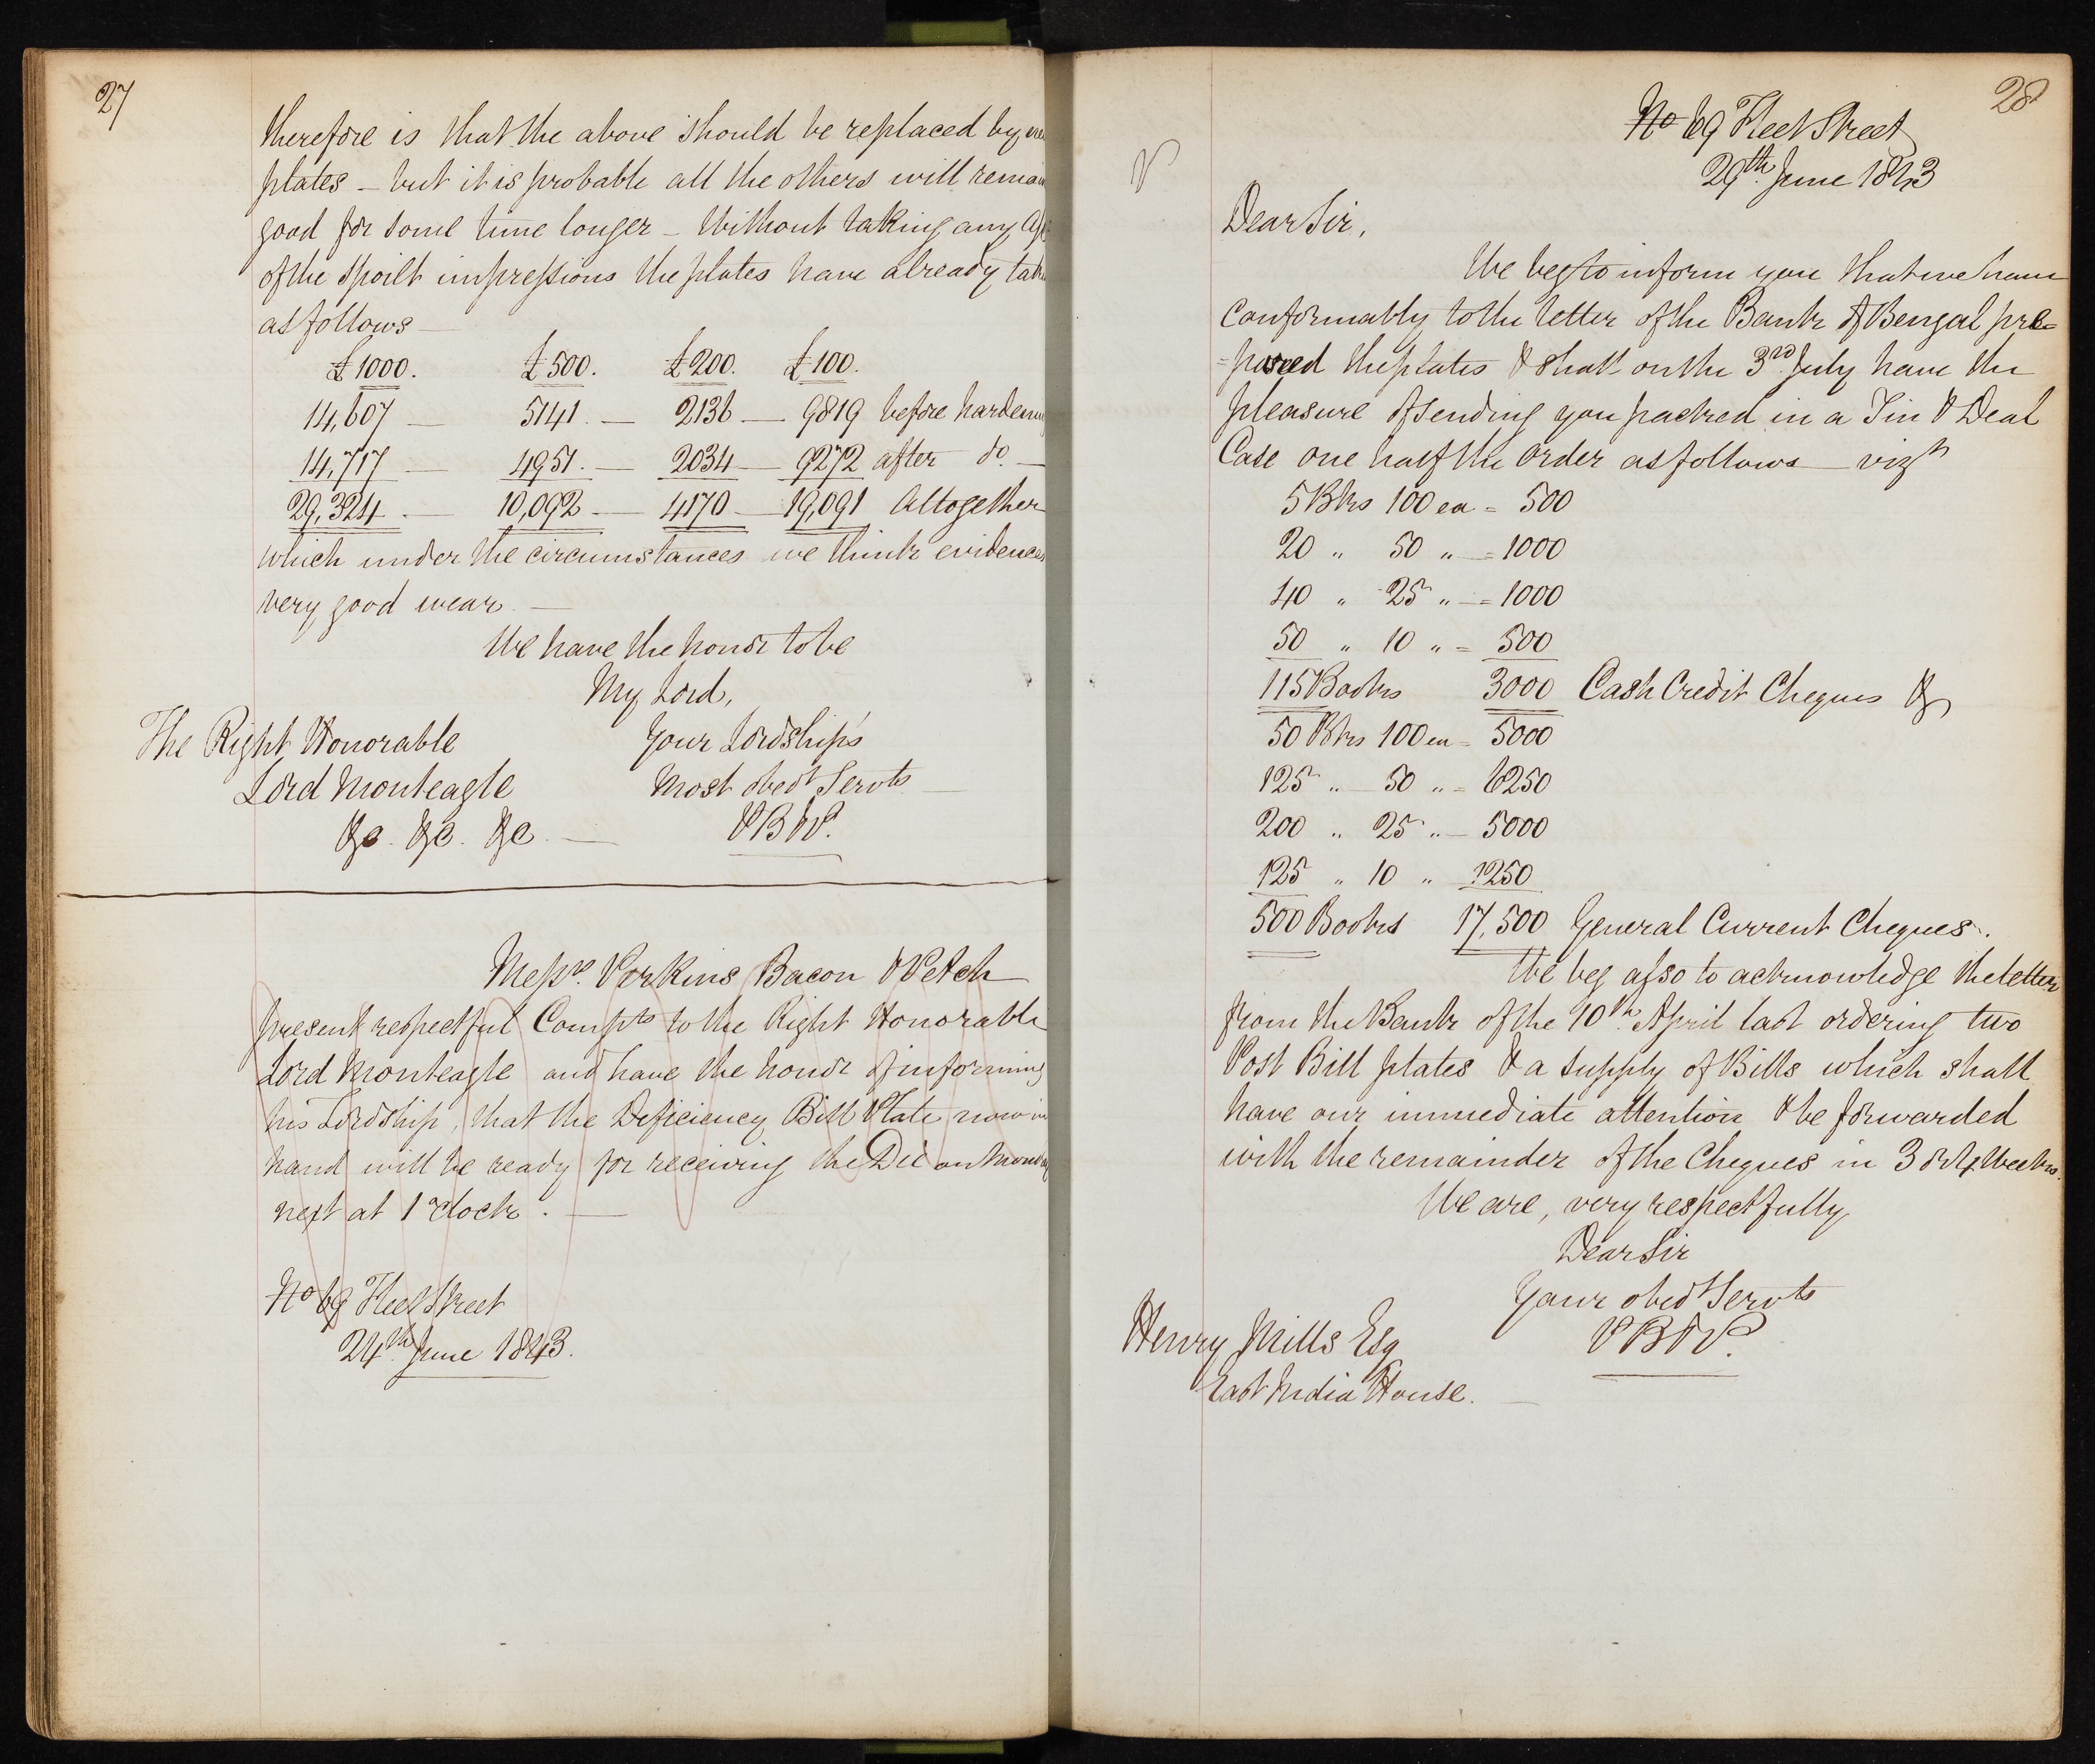 27
therefore is that the above should be replaced by new
plates – but it is probable all the others will remain
good for some time longer – Without taking any
of the spoilt impressions the plates have already take
as follows –
£1000. £500. £200. £100.
14,607 — 5141. — 2136 — 9819 before hardening
14,717 — 4951. — 2034 — 9272 after do. —
29,324. — 10,092 — 4170 — 19,091 Altogether
which under the circumstances we think evidences
very good wear. —
We have the honor to be
My Lord,
Your Lordship's
Most obedt Servts —
PB&P.
The Right Honorable
Lord Monteagle
&c. &c. &c. —
Messrs. Perkins Bacon & Petch
present respectful Compts to the Right Honorable
Lord Monteagle and have the honor of informing
his Lordship, that the Deficiency Bill Plate now in
hand will be ready for receiving the Die on Monday
next at 1 oClock. —
No 69 Fleet Street
24th. June 1843.
28
No 69 Fleet Street
29th. June 1843
P
Dear Sir,
We beg to inform you that we have
conformably to the letter of the Bank of Bengal pre=
=pared the plates & shall on the 3rd. July have the
pleasure of sending you packed in a Tin & Deal
Case one half the order as follows — vizt
5 Bks 100 ea = 500
20 " 50 " = 1000
40 " 25 " = 1000
50 " 10 " = 500
115 Books 3000 Cash Credit Cheques &
50 Bks 100 ea = 5000
125 " 50 " = 6250
200 " 25 " — 5000
125 " 10 " 1250
500 Books 17,500 General Current Cheques.
We beg also to acknowledge the letter
from the Bank of the 10th. April last ordering two
Post Bill plates & a supply of Bills which shall
have our immediate attention & be forwarded
with the remainder of the Cheques in 3 or 4 Weeks.
We are, very respectfully
Dear Sir
Your obedt Servts
PB&P.
Henry Mills Esq
East India House. —